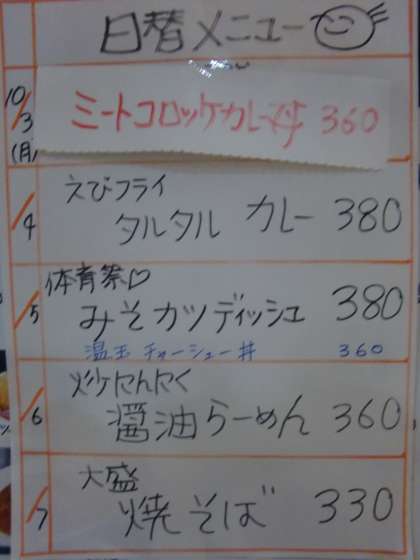 日替メニュー
10/3
(月)
ミートコロッケカレー丼 360
/4
えびフライ
タルタル カレー 380
/5
体育祭♡
みそカツディッシュ 380
温玉 チャーシュー丼 360
/6
炒にんにく
醤油らーめん 360
/7
大盛
焼そば 330